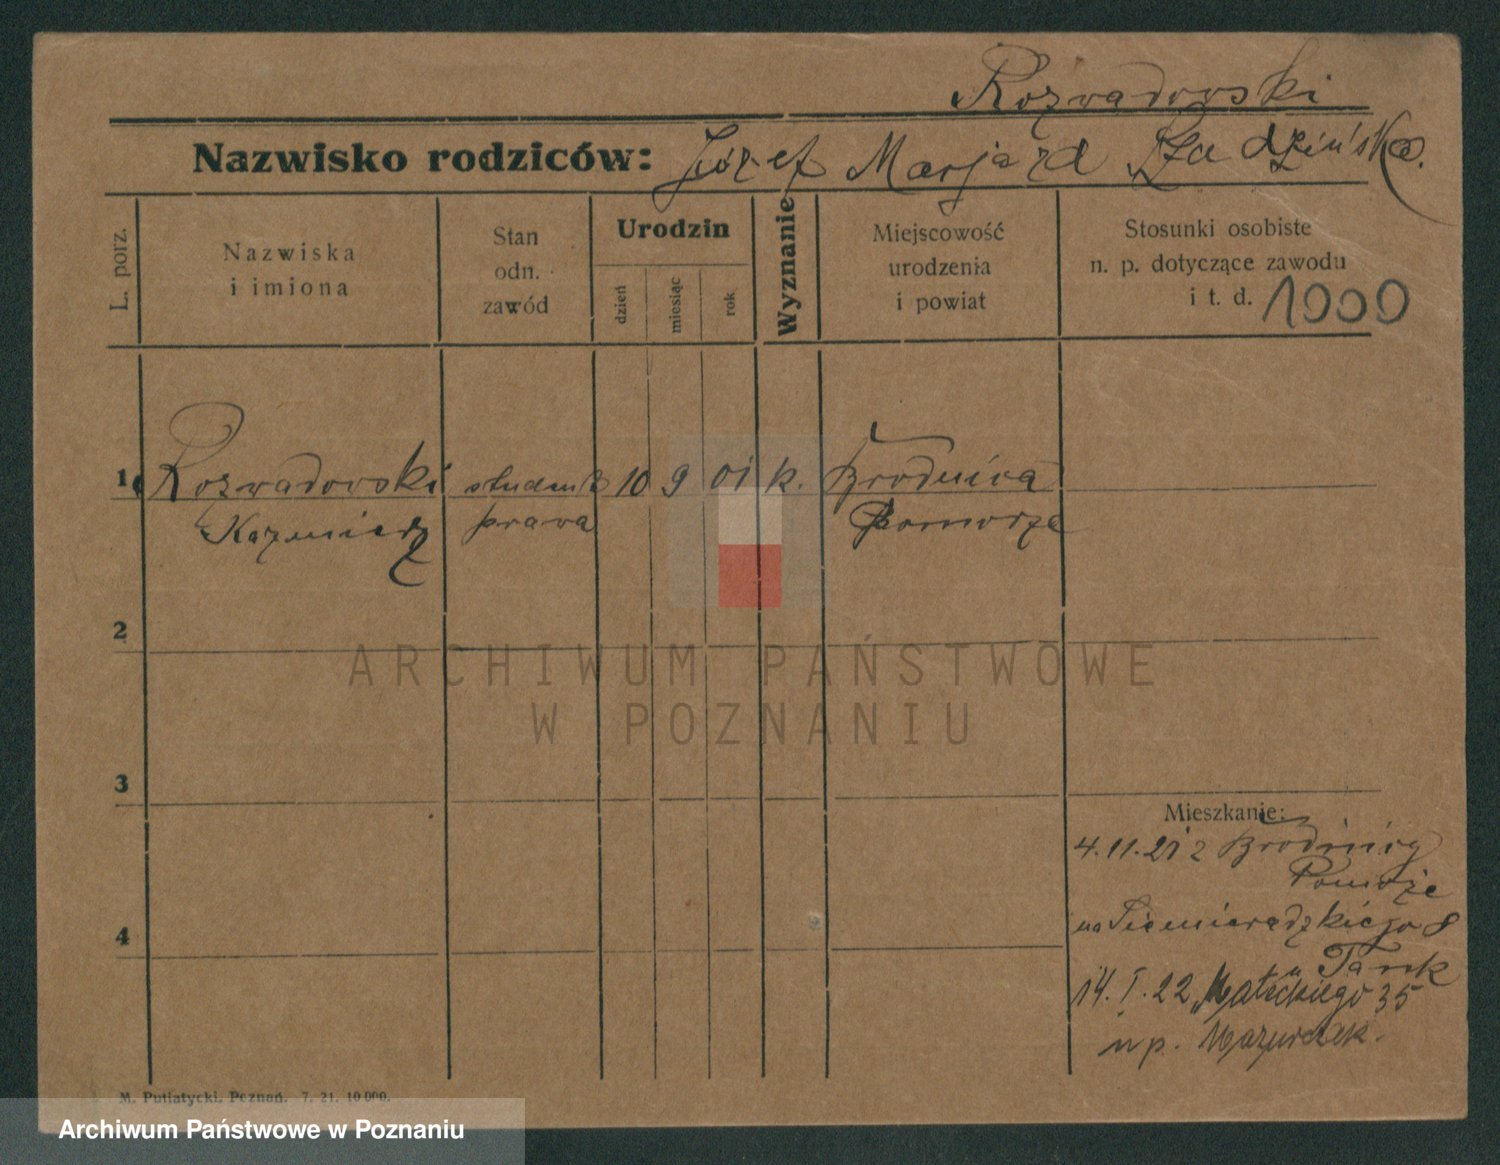 Rozwadowski
Nazwisko rodziców: Józef Marja zd Rza dzińska.
L. porz.
Nazwiska
i imiona
Stan
odn.
zawód
Urodzin
dzień
miesiąc
rok
Wyznanie
Miejscowość
urodzenia
i powiat
Stosunki osobiste
n. p. dotyczące zawodu
i t. d. 1000
1 Rozwadowski student 10 9 01 k. Brodnica
Kazmierz prawa Pomorze
2
ARCHIWUM PAŃSTWOWE
W POZNANIU
3
Mieszkanie:
4.11.21 z Brodnicy
Pomorze
na Siemieradzkiego 8
4
u Tank
14. I. 22 Małeckiego 35
u p. Mazurczak.
M. Putiatycki, Poznań. 7. 21. 10 000.
Archiwum Państwowe w Poznaniu